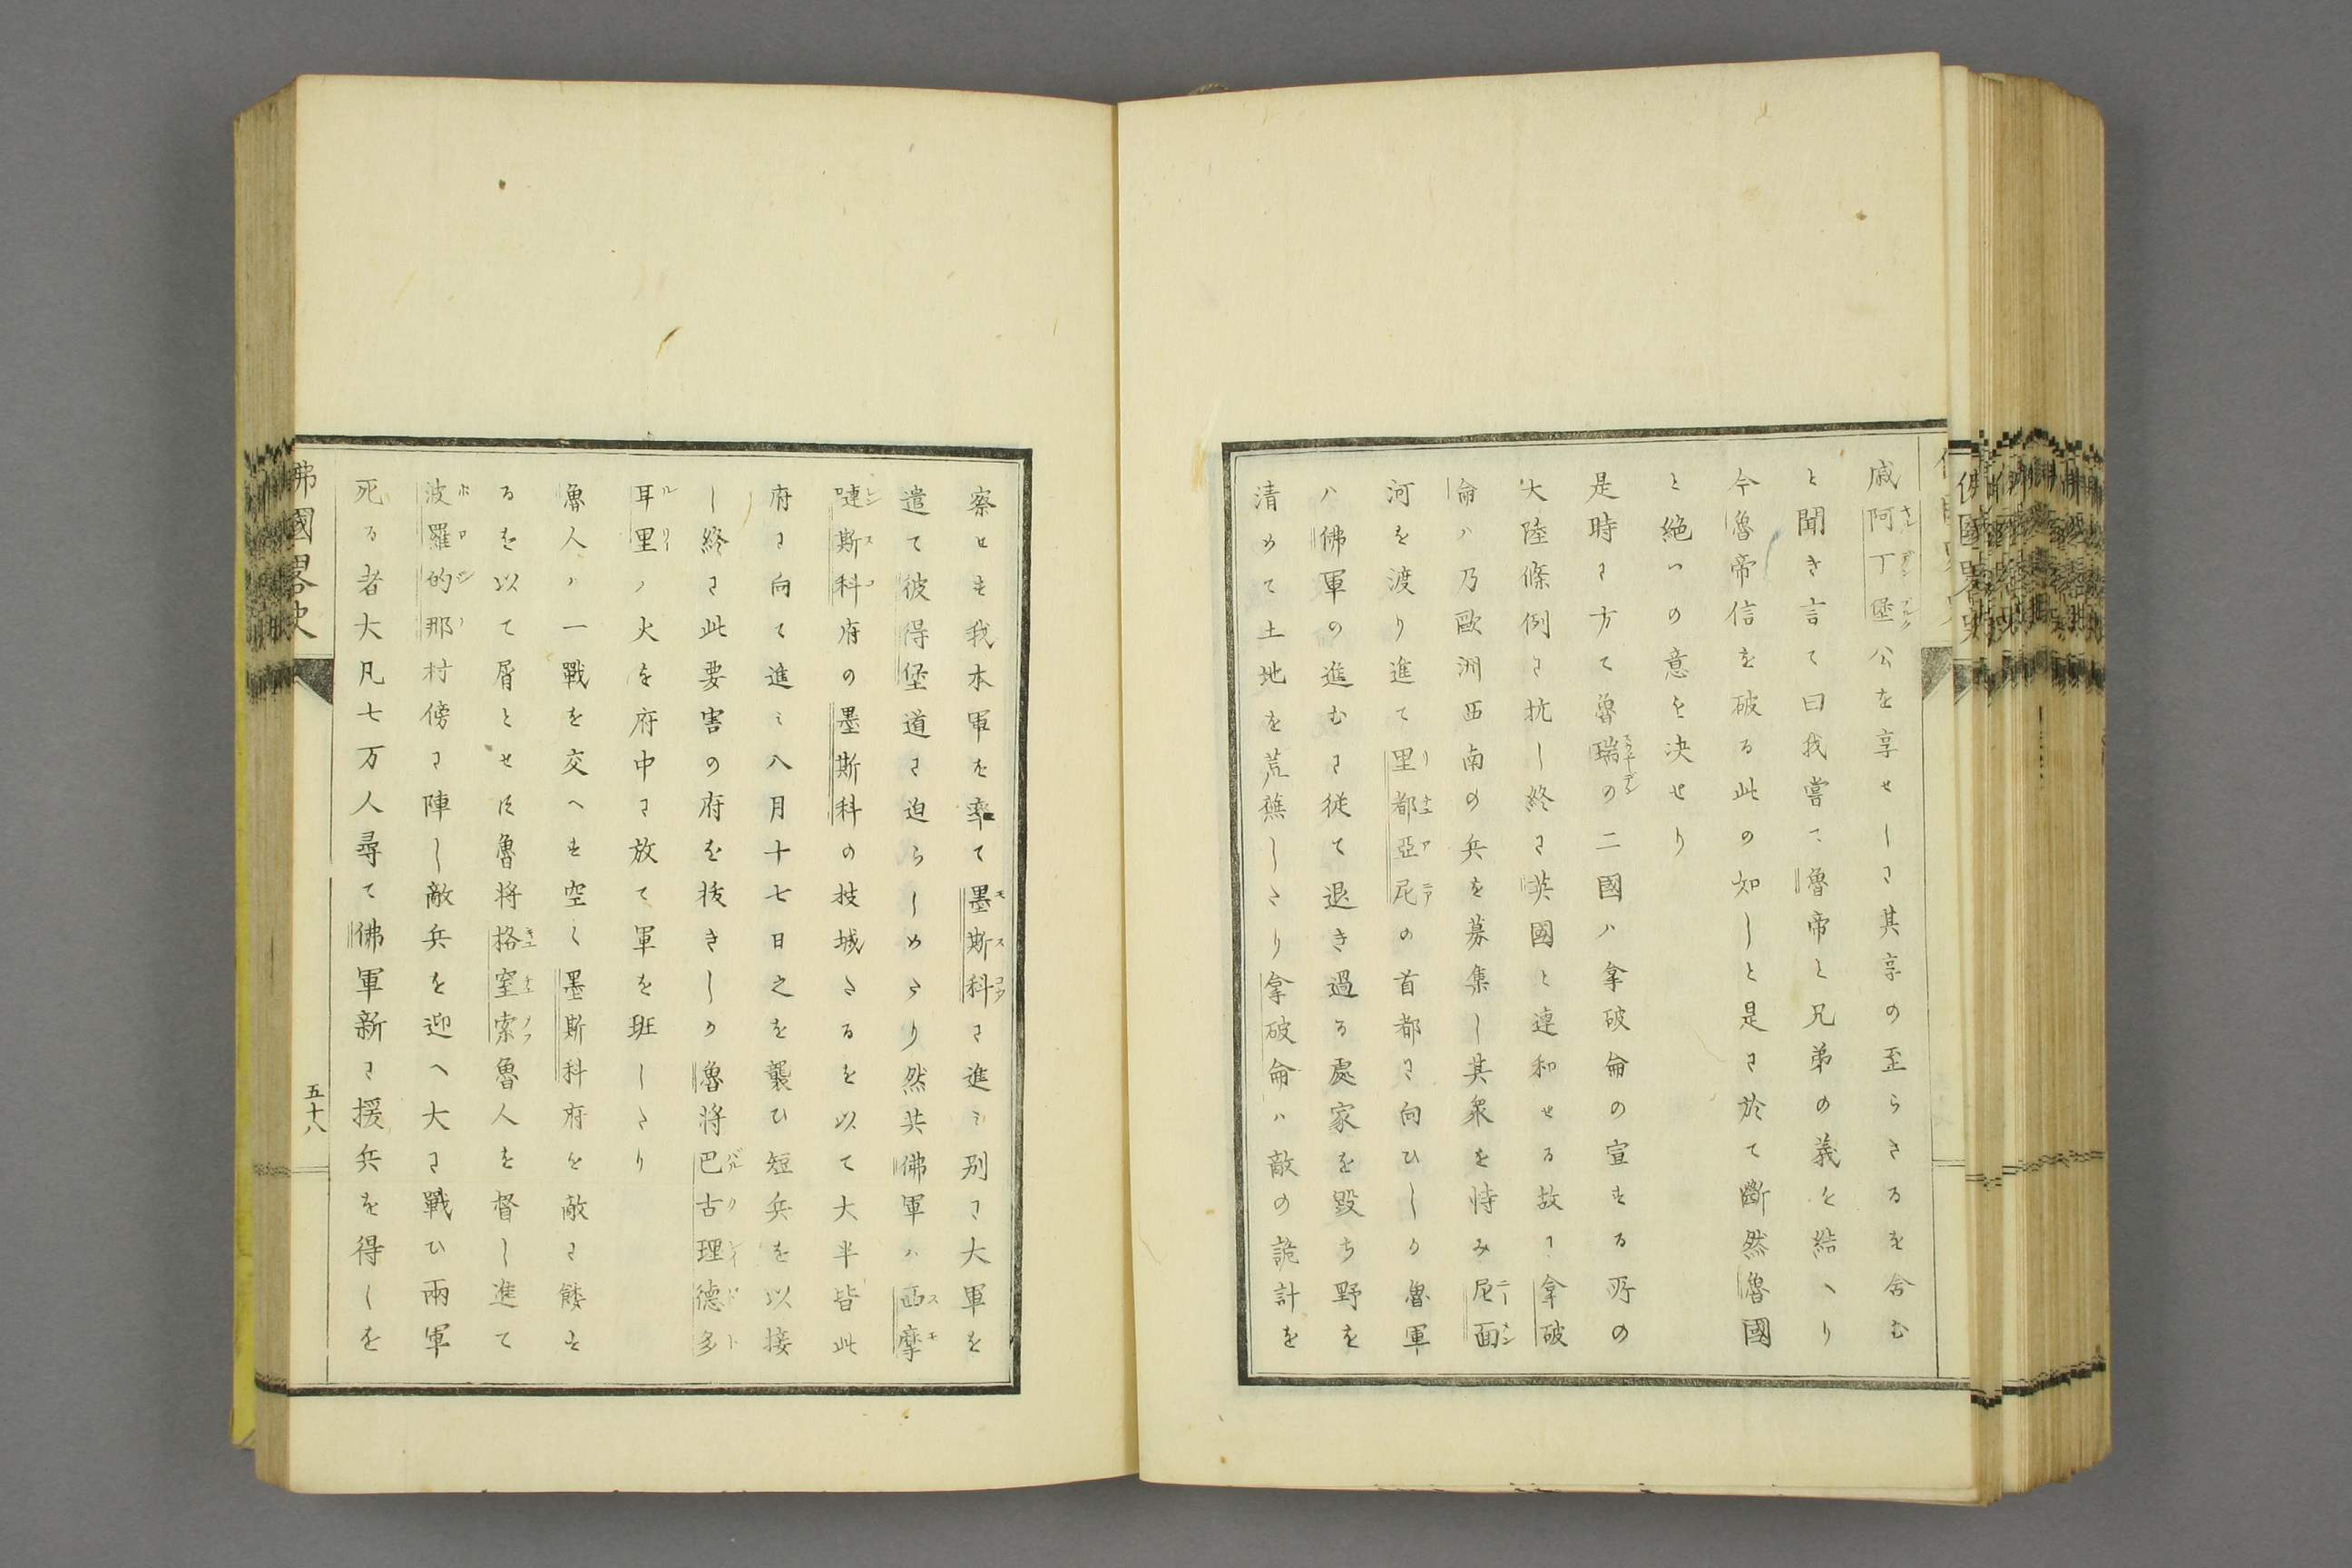 戚阿丁堡公を享せしに其享の至らさるを舎む
と聞き言て曰我嘗て魯帝と兄弟の義を結へり
今魯帝信を破る此の知しと是に於て斷然魯國
と絶つの意を决せり
是時に方て魯瑞の二國ハ拿破侖の宣する所の
大陸條例に抗し終に英國と連和せる故に拿破
侖ハ乃歐洲西南の兵を募集し其衆を恃み尼面
河を渡り進て里都亞尼の首都に向ひしか魯軍
ハ佛軍の進むに従て退き過る處家を毀ち野を
清めて土地を荒蕪したり拿破侖ハ敵の詭計を
察せす我本軍を率て墨斯科に進ミ別に大軍を
遣て彼得堡道に迫らしめたり然共佛軍ハ西摩
嗹斯科府の墨斯科の技城たるを以て大半皆此
府に向て進ミ八月十七日之を襲ひ短兵を以接
し終に此要害の府を抜きしか魯將巴古理德多
耳里ノ火を府中に放て軍を班したり
魯人ハ一戰を交へす空く墨斯科府を敵に餧す
るを以て屑とせす魯將格窒索魯人を督し進て
波羅的那村傍に陣し敵兵を迎へ大に戰ひ兩軍
死る者大凡七万人尋て佛軍新に援兵を得しを
佛國畧史
五十八